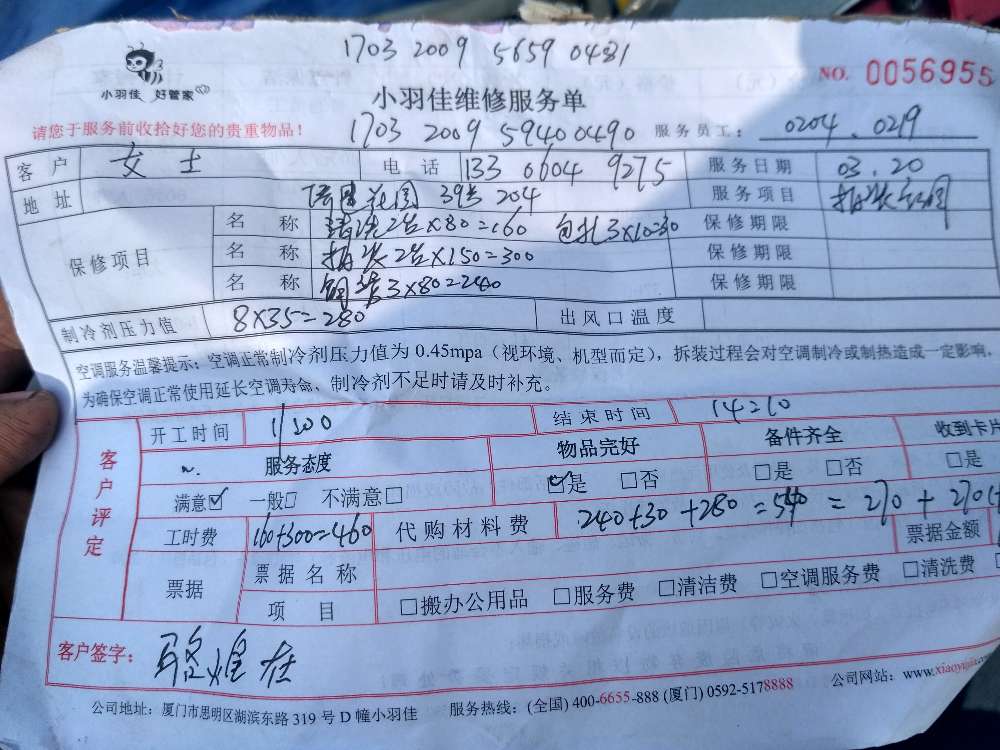 1703 2009 5659 0481
小羽佳 好管家
NO. 0056955
小羽佳维修服务单
请您于服务前收拾好您的贵重物品!
1703 2009 5940 0490 服务员工: 0204.0219
客户 女士 电话 133 0604 9275 服务日期 03.20
地址 花园 39 204 服务项目 拆装空调
保修项目 名称 清洗2台×80=160 包扎3×10=30 保修期限
名称 拆装2台×150=300 保修期限
名称 3×80=240 保修期限
制冷剂压力值 8×35=280 出风口温度
空调服务温馨提示: 空调正常制冷剂压力值为 0.45mpa (视环境、机型而定), 拆装过程会对空调制冷或制热造成一定影响,
为确保空调正常使用延长空调寿命, 制冷剂不足时请及时补充。
客户评定
开工时间 结束时间 14=10
服务态度 物品完好 备件齐全 收到卡片
满意☑ 一般□ 不满意□ ☑是 □否 □是 □否 □是
工时费 160+300=460 代购材料费 240+30+280=540=270+270 票据金额
票据 票据名称
项目 □搬办公用品 □服务费 □清洁费 □空调服务费 □清洗费
客户签字:
公司地址: 厦门市思明区湖滨东路 319 号 D 幢小羽佳 服务热线: (全国) 400-6655-888 (厦门) 0592-5178888 公司网站: www.xiaoyujia